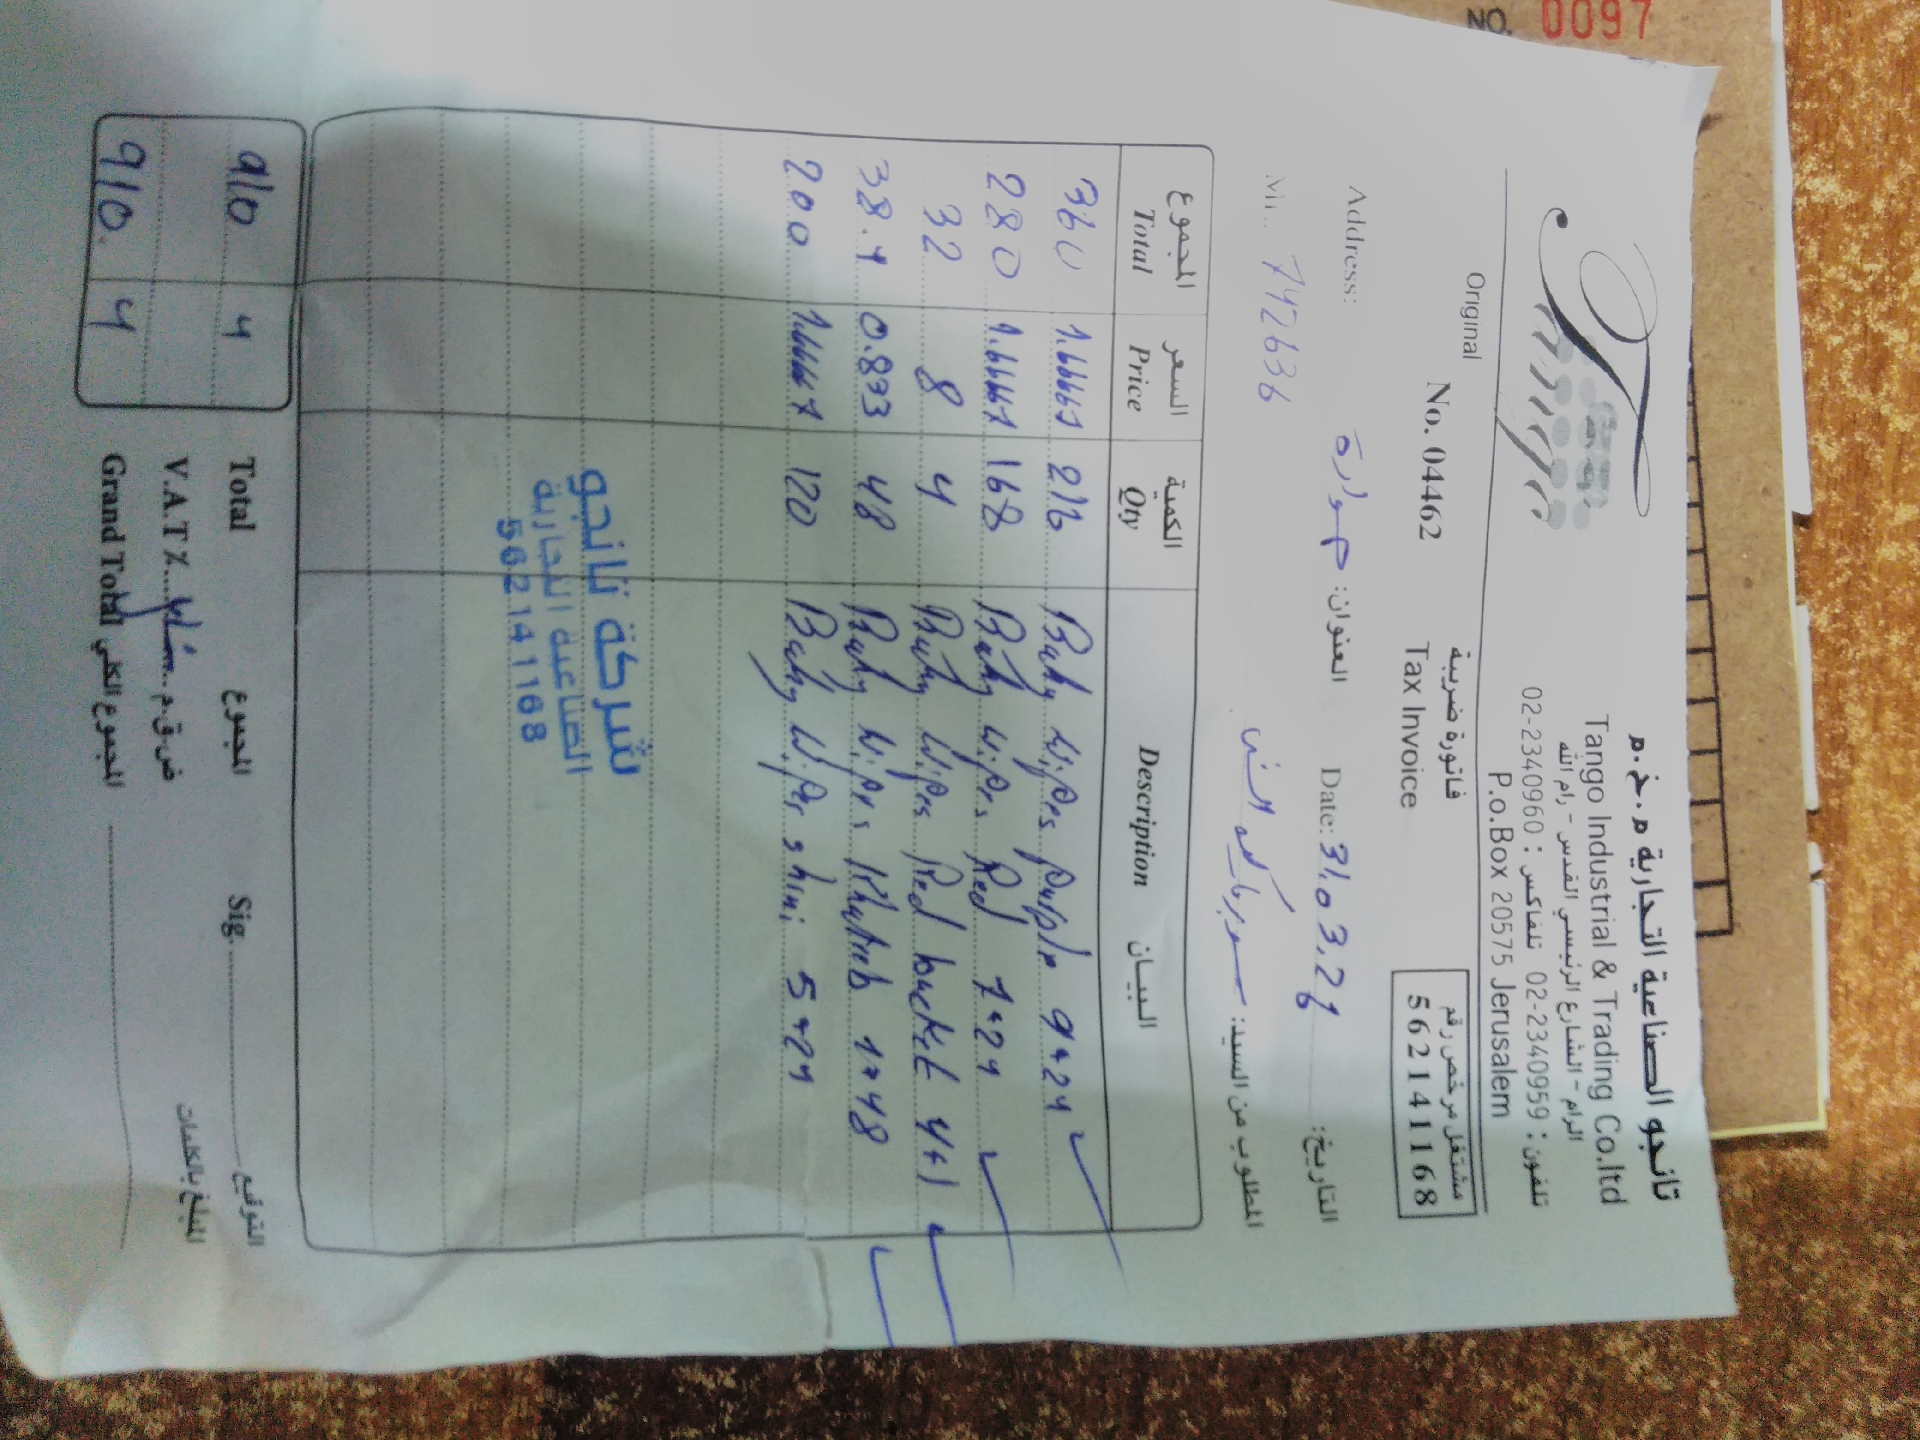 NO. 0097
تانجو الصناعية التجارية م.خ.م
Tango Industrial & Trading Co.ltd
الرام - الشارع الرئيسي القدس - رام الله
تلفون: 02-2340959 تلفاكس: 02-2340960
P.o.Box 20575 Jerusalem
Original
فاتورة ضريبية
مشتغل مرخص رقم
No. 04462 Tax Invoice 562141168
Address: حوارة العنوان: Date: 31.03.26 التاريخ:
Mr. 742636 المطلوب من السيد:
المجموع السعر الكمية البيـــان
Total Price Qty Description
360 1.66667 216 Baby Wipes purple 9*24
280 1.66667 168 Baby Wipes Red 7*24
32 8 4 Baby Wipes Red bucket 4*1
38.4 0.833 48 Baby Wipes 1*48
200 1.66667 120 Baby Wipes shini 5*24
شركة تانجو
الصناعية التجارية
562141168
910 4 Total المجموع Sig. التوقيع
V.A.T٪ ض.ق.م المبلغ بالكلمات
910. 4 Grand Total المجموع الكلي